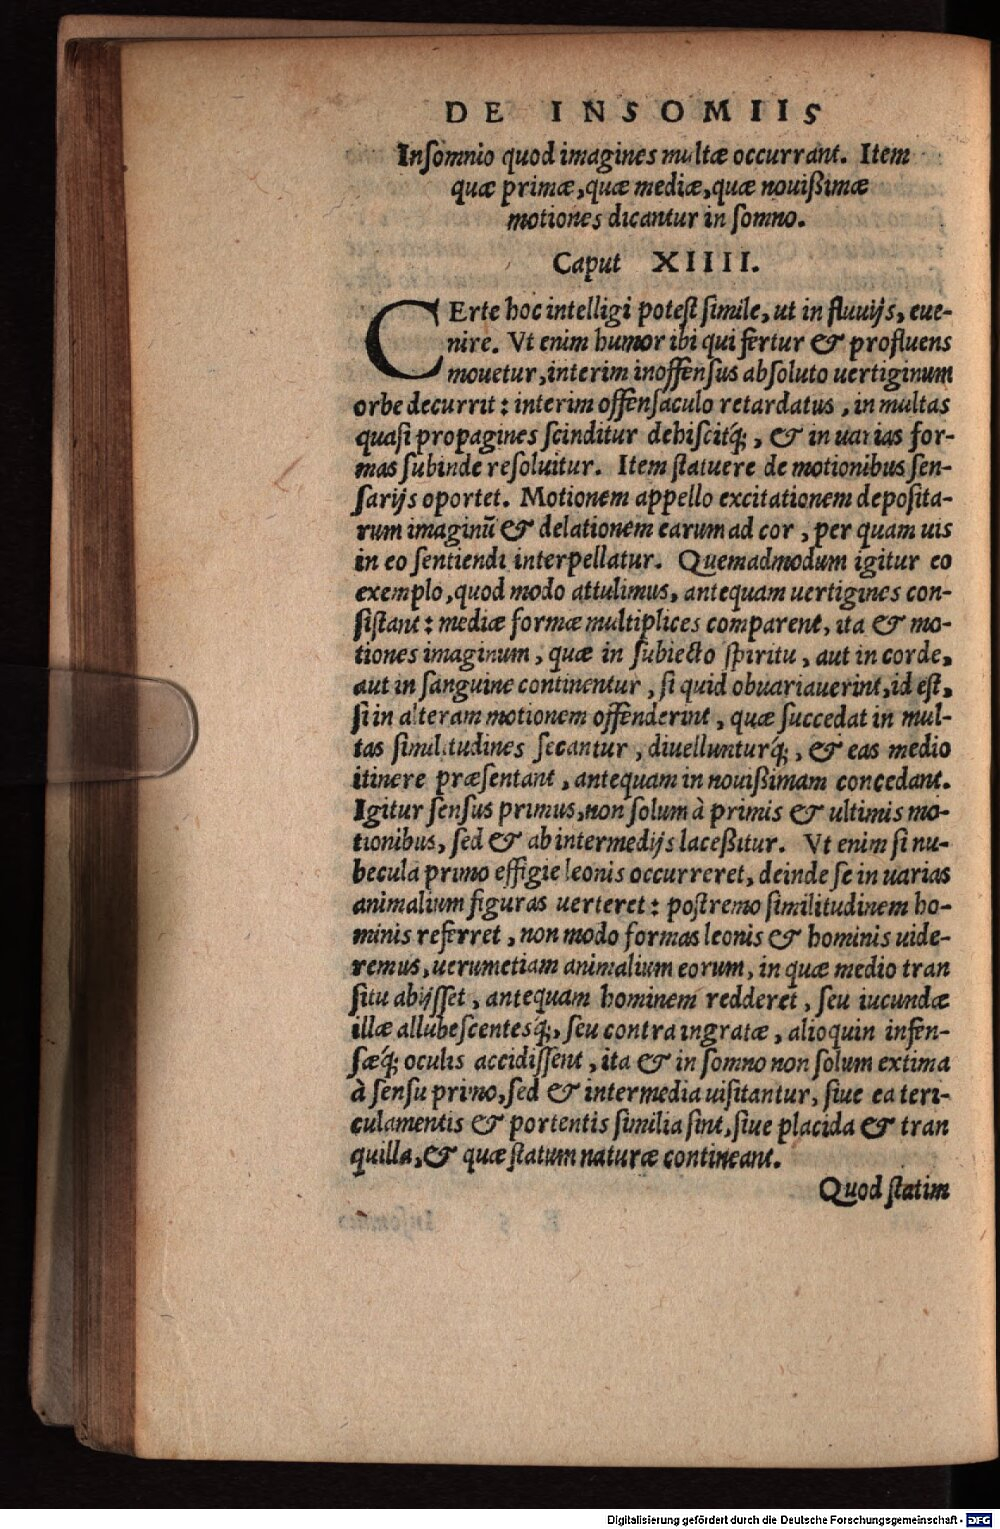 DE INSOMIIS
Inſomnio quod imagines multæ occurrant. Item
quæ primæ, quæ mediæ, quæ nouißimæ
motiones dicantur in ſomno.
Caput XIIII.
CErte hoc intelligi poteſt ſimile, ut in fluuijs, eue-
nire. Vt enim humor ibi qui fertur & profluens
mouetur, interim inoffenſus abſoluto uertiginum
orbe decurrit: interim offenſaculo retardatus, in multas
quaſi propagines ſcinditur dehiſcitq́;, & in uarias for-
mas ſubinde reſoluitur. Item ſtatuere de motionibus ſen-
ſarijs oportet. Motionem appello excitationem depoſita-
rum imaginũ & delationem earum ad cor, per quam uis
in eo ſentiendi interpellatur. Quemadmodum igitur eo
exemplo, quod modo attulimus, antequam uertigines con-
ſiſtant: mediæ formæ multiplices comparent, ita & mo-
tiones imaginum, quæ in ſubiecto ſpiritu, aut in corde,
aut in ſanguine continentur, ſi quid obuariauerint, id eſt,
ſi in alteram motionem offenderint, quæ ſuccedat in mul-
tas ſimilitudines ſecantur, diuellunturq́;, & eas medio
itinere præſentant, antequam in nouißimam concedant.
Igitur ſenſus primus, non ſolum à primis & ultimis mo-
tionibus, ſed & ab intermedijs laceßitur. Vt enim ſi nu-
becula primo effigie leonis occurreret, deinde ſe in uarias
animalium figuras uerteret: poſtremo ſimilitudinem ho-
minis referret, non modo formas leonis & hominis uide-
remus, uerumetiam animalium eorum, in quæ medio tran
ſitu abijſſet, antequam hominem redderet, ſeu iucundæ
illæ allubeſcentesq́;, ſeu contra ingratæ, alioquin infen-
ſæq́; oculis accidiſſent, ita & in ſomno non ſolum extima
à ſenſu primo, ſed & intermedia uiſitantur, ſiue ea teri-
culamentis & portentis ſimilia ſint, ſiue placida & tran
quilla, & quæ ſtatum naturæ contineant.
Quod ſtatim
Digitalisierung gefördert durch die Deutsche Forschungsgemeinschaft - DFG